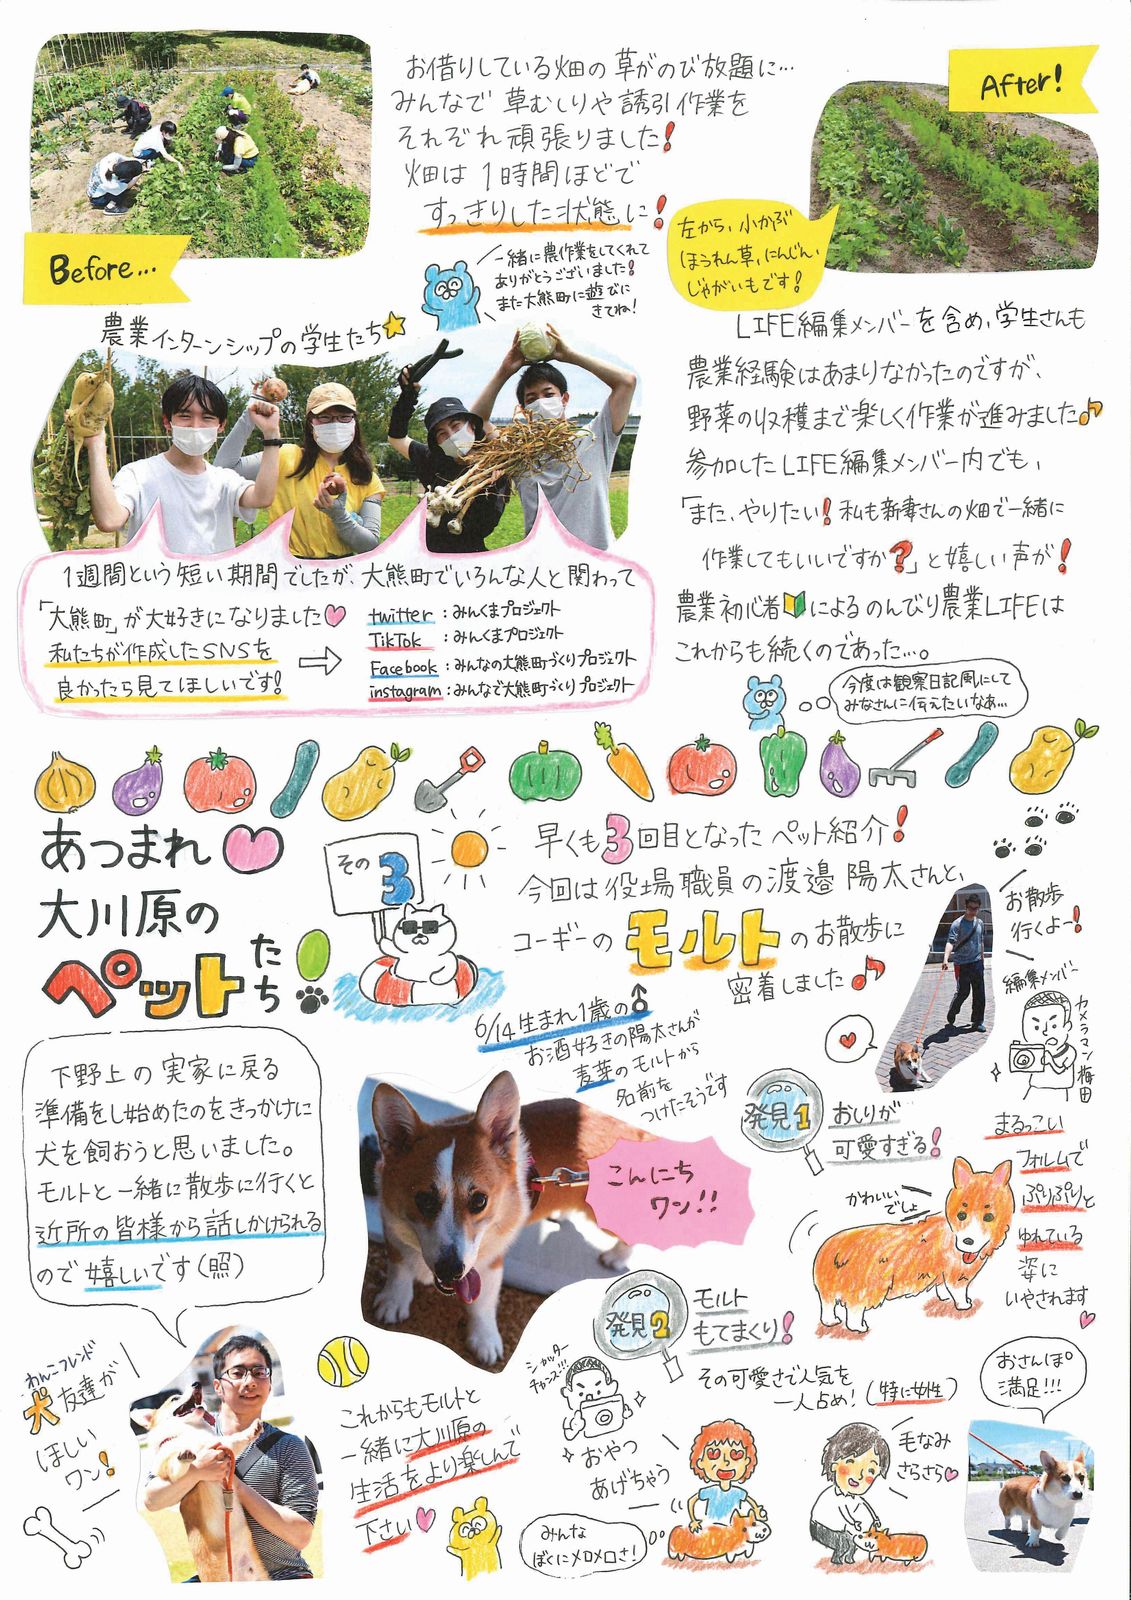 お借りしている畑の草がのび放題に…
みんなで草むしりや誘引作業を
それぞれ頑張りました!
畑は1時間ほどで
すっきりした状態に!
Before…
After!
左から、小かぶ
ほうれん草,にんじん、
じゃがいもです!
一緒に農作業をしてくれて
ありがとうございました!
また大熊町に遊びに
きてね!
農業インターンシップの学生たち
1週間という短い期間でしたが、大熊町でいろんな人と関わって
「大熊町」が大好きになりました
私たちが作成したSNSを
良かったら見てほしいです!
twitter:みんくまプロジェクト
TikTok:みんくまプロジェクト
Facebook:みんなの大熊町づくりプロジェクト
instagram:みんなで大熊町づくりプロジェクト
LIFE編集メンバーを含め、学生さんも
農業経験はあまりなかったのですが、
野菜の収穫まで楽しく作業が進みました♪
参加したLIFE編集メンバー内でも、
「また、やりたい!私も新妻さんの畑で一緒に
作業してもいいですか?」と嬉しい声が!
農業初心者によるのんびり農業LIFEは
これからも続くのであった…。
今度は観察日記風にして
みなさんに伝えたいなぁ…
あつまれ
大川原の
ペットたち!
その3
早くも3回目となったペット紹介!
今回は役場職員の渡邉陽太さんと、
コーギーのモルトのお散歩に
密着しました♪
6/14生まれ1歳の♂
お酒好きの陽太さんが
麦芽のモルトから
名前を
つけたそうです
お散歩
行くよー!
編集メンバー
カメラマン梅田
下野上の実家に戻る
準備をし始めたのをきっかけに
犬を飼おうと思いました。
モルトと一緒に散歩に行くと
近所の皆様から話しかけられる
ので嬉しいです(照)
こんにち
ワン!!
発見1
おしりが
可愛すぎる!
かわいい
でしょ
まるっこい
フォルムで
ぷりぷりと
ゆれている
姿に
いやされます
発見2
モルト
もてまくり!
その可愛さで人気を
一人占め!(特に女性)
シャッター
チャンス!!!
おやつ
あげちゃう
毛なみ
さらさら
みんな
ぼくにメロメロさ!
おさんぽ
満足!!!
わんこフレンド
犬友達が
ほしい
ワン!
これからもモルトと
一緒に大川原の
生活をより楽しんで
下さい